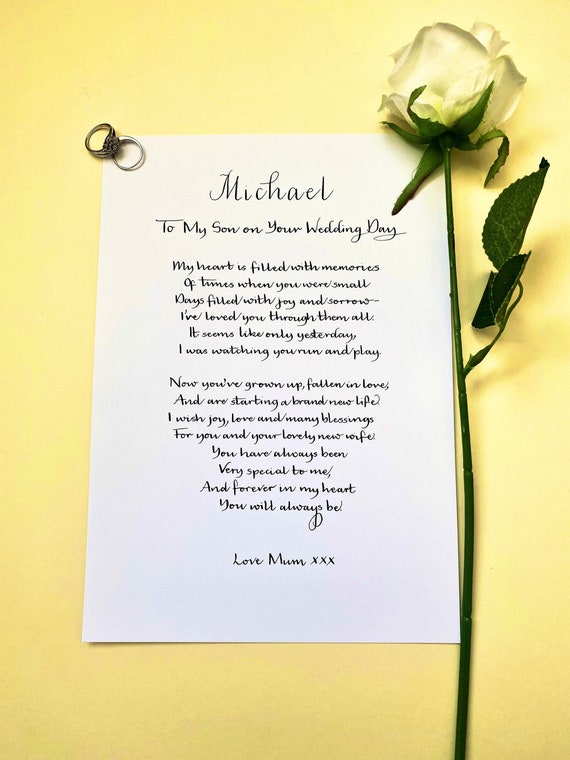 Michael
To My Son on Your Wedding Day
My heart is filled with memories
Of times when you were small
Days filled with joy and sorrow-
I've loved you through them all.
It seems like only yesterday,
I was watching you run and play.
Now you've grown up, fallen in love,
And are starting a brand new life.
I wish joy, love and many blessings
For you and your lovely new wife.
You have always been
Very special to me,
And forever in my heart
You will always be.
Love Mum xxx